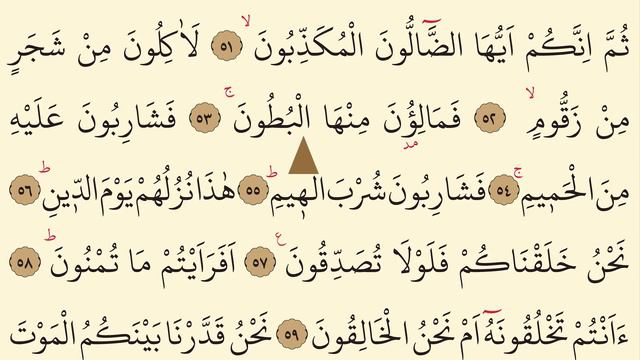 ثُمَّ اِنَّكُمْ اَيُّهَا الضَّٓالُّونَ الْمُكَذِّبُونَۙ ﴿٥١﴾ لَاٰكِلُونَ مِنْ شَجَرٍ
مِنْ زَقُّومٍۙ ﴿٥٢﴾ فَمَالِؤُ۫نَ مِنْهَا الْبُطُونَۚ ﴿٥٣﴾ فَشَارِبُونَ عَلَيْهِ
مِنَ الْحَم۪يمِۚ ﴿٥٤﴾ فَشَارِبُونَ شُرْبَ الْه۪يمِۜ ﴿٥٥﴾ هٰذَا نُزُلُهُمْ يَوْمَ الدّ۪ينِۜ ﴿٥٦﴾
نَحْنُ خَلَقْنَاكُمْ فَلَوْلَا تُصَدِّقُونَ ﴿٥٧﴾ اَفَرَاَيْتُمْ مَا تُمْنُونَۜ ﴿٥٨﴾
ءَاَنْتُمْ تَخْلُقُونَهُٓ اَمْ نَحْنُ الْخَالِقُونَ ﴿٥٩﴾ نَحْنُ قَدَّرْنَا بَيْنَكُمُ الْمَوْتَ